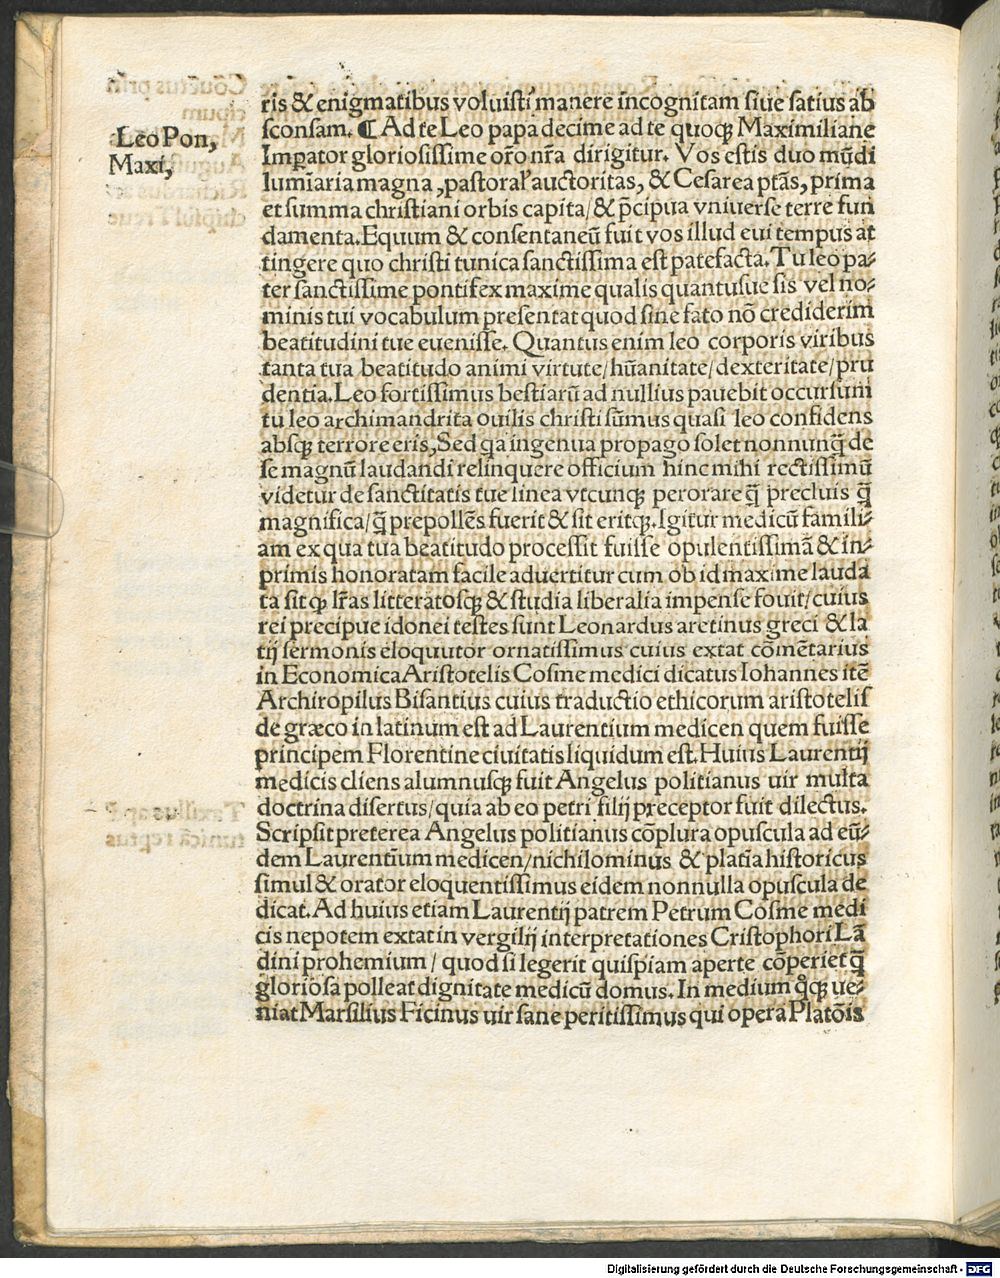 Leo Pon,
Maxi,
ris & enigmatibus voluisti manere incognitam siue satius ab
sconsam. ¶ Ad te Leo papa decime ad te quoqꝫ Maximiliane
Imꝑator gloriosissime or̃o nr̃a dirigitur. Vos estis duo mũdi
lumĩaria magna, pastoral' auctoritas, & Cesarea ptãs, prima
et summa christiani orbis capita/ & p̃cipua vniuerse terre fun
damenta. Equum & consentaneũ fuit vos illud eui tempus at
tingere quo christi tunica sanctissima est patefacta. Tu leo pa⸗
ter sanctissime pontifex maxime qualis quantusue sis vel no⸗
minis tui vocabulum presentat quod sine fato nõ crediderim
beatitudini tue euenisse. Quantus enim leo corporis viribus
tanta tua beatitudo animi virtute/ hũanitate/ dexteritate/ pru
dentia. Leo fortissimus bestiarũ ad nullius pauebit occursum
tu leo archimandrita ouilis christi sũmus quasi leo confidens
absqꝫ terrore eris, Sed qa ingenua propago solet nonnunq̃ de
se magnũ laudandi relinquere officium hinc mihi rectissimũ
videtur de sanctitatis tue linea vtcunqꝫ perorare q̃ precluis q̃
magnifica/ q̃ prepollẽs fuerit & sit eritqꝫ. Igitur medicũ famili⸗
am ex qua tua beatitudo processit fuisse opulentissimã & in⸗
primis honoratam facile aduertitur cum ob id maxime lauda
ta sit ꝙ lr̃as litteratosqꝫ & studia liberalia impense fouit/ cuius
rei precipue idonei testes sunt Leonardus aretinus greci & la
tij sermonis eloquutor ornatissimus cuius extat cõmẽtarius
in Economica Aristotelis Cosme medici dicatus Iohannes itẽ
Archiropilus Bisantius cuius traductio ethicorum aristotelis
de græco in latinum est ad Laurentium medicen quem fuisse
principem Florentine ciuitatis liquidum est. Huius Laurentij
medicis cliens alumnusqꝫ fuit Angelus politianus uir multa
doctrina disertus/ quia ab eo petri filij preceptor fuit dilectus.
Scripsit preterea Angelus politianus cõplura opuscula ad eũ⸗
dem Laurentium medicen/ nichilominus & platĩa historicus
simul & orator eloquentissimus eidem nonnulla opuscula de
dicat. Ad huius etiam Laurentij patrem Petrum Cosme medi
cis nepotem extat in vergilij interpretationes Cristophori Lã
dini prohemium/ quod si legerit quispiam aperte cõperiet q̃
gloriosa polleat dignitate medicũ domus. In medium qͦqꝫ ue⸗
niat Marsilius Ficinus uir sane peritissimus qui opera Platõis
Digitalisierung gefördert durch die Deutsche Forschungsgemeinschaft - DFG